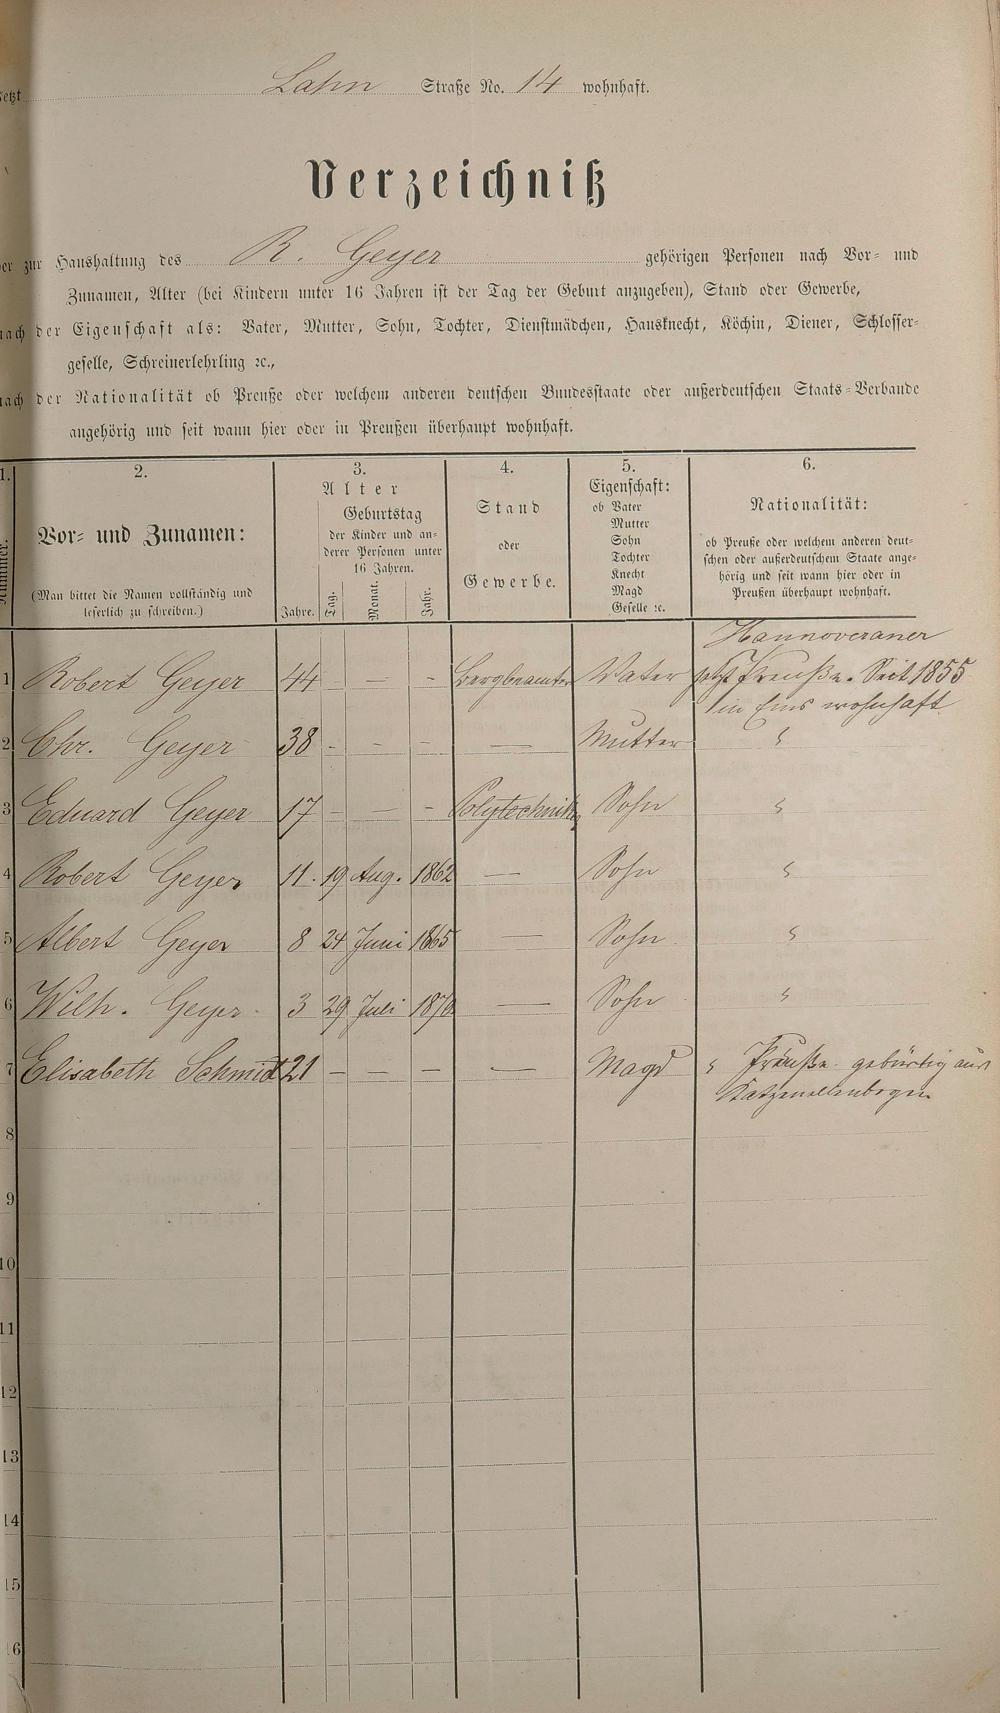 jetzt Lahn Straße No. 14 wohnhaft.
Verzeichniß
der zur Haushaltung des R. Geyer gehörigen Personen nach Vor- und
Zunamen, Alter (bei Kindern unter 16 Jahren ist der Tag der Geburt anzugeben), Stand oder Gewerbe,
nach der Eigenschaft als: Vater, Mutter, Sohn, Tochter, Dienstmädchen, Hausknecht, Köchin, Diener, Schlosser-
geselle, Schreinerlehrling ꝛc.,
nach der Nationalität ob Preuße oder welchem anderen deutschen Bundesstaate oder außerdeutschen Staats-Verbande
angehörig und seit wann hier oder in Preußen überhaupt wohnhaft.
1.
Nummer.
2.
Vor- und Zunamen:
(Man bittet die Namen vollständig und
leserlich zu schreiben.)
3.
Alter
Jahre.
Geburtstag
der Kinder und an-
derer Personen unter
16 Jahren.
Tag. Monat. Jahr.
4.
Stand
oder
Gewerbe.
5.
Eigenschaft:
ob Vater
Mutter
Sohn
Tochter
Knecht
Magd
Geselle ꝛc.
6.
Nationalität:
ob Preuße oder welchem anderen deut-
schen oder außerdeutschem Staate ange-
hörig und seit wann hier oder in
Preußen überhaupt wohnhaft.
Hannoveraner
1 Robert Geyer 44 - - - Bergbeamter Vater jetzt Preuße. Seit 1855
in Ems wohnhaft
2 Chr. Geyer 38 - - - — Mutter "
3 Eduard Geyer 17 - - - Polytechniker Sohn "
4 Robert Geyer 11. 19 Aug. 1862 — Sohn "
5 Albert Geyer 8 24 Juni 1865 — Sohn "
6 Wilh. Geyer 3 29 Juli 1870 — Sohn "
7 Elisabeth Schmidt 21 - - - — Magd " Preuße gebürtig aus
Katzenellenbogen
8
9
10
11
12
13
14
15
16